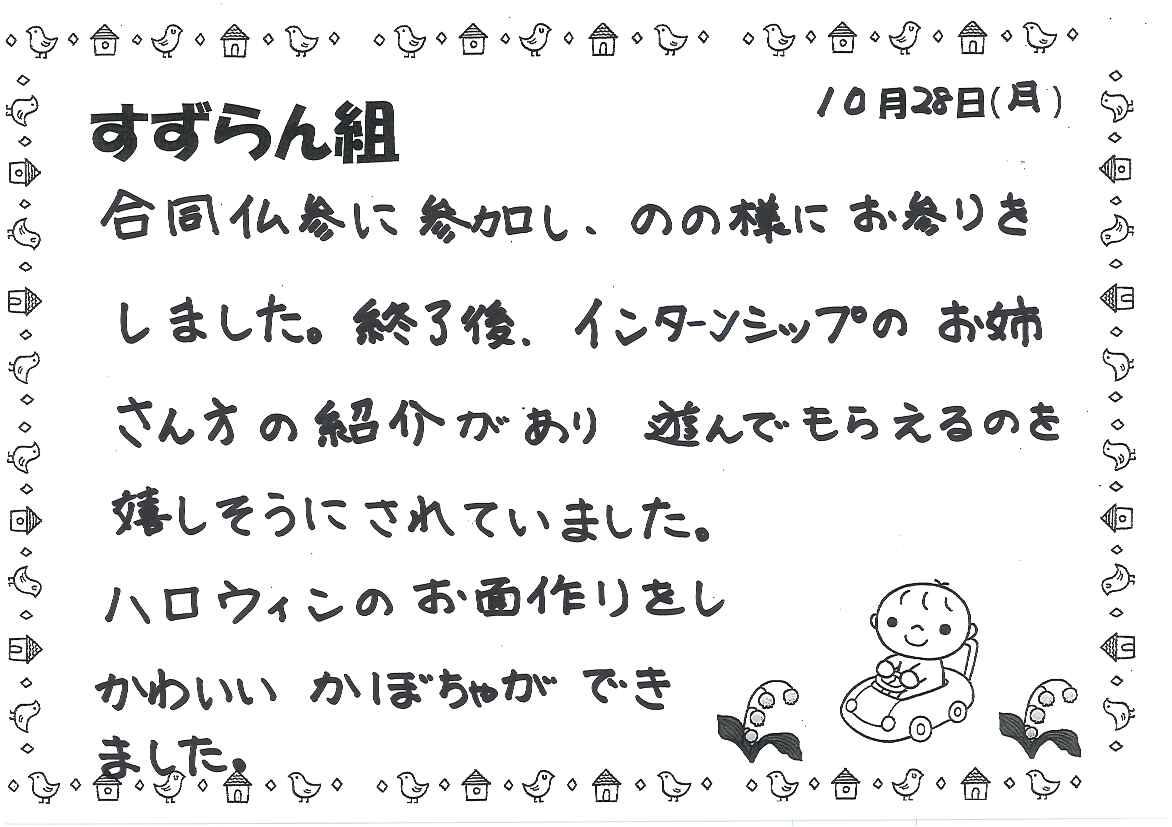 10月28日(月)
すずらん組
合同仏参に参加し、のの様にお参りを
しました。終了後、インターンシップの お姉
さん方の紹介があり 遊んでもらえるのを
嬉しそうにされていました。
ハロウィンのお面作りをし
かわいい かぼちゃができ
ました。